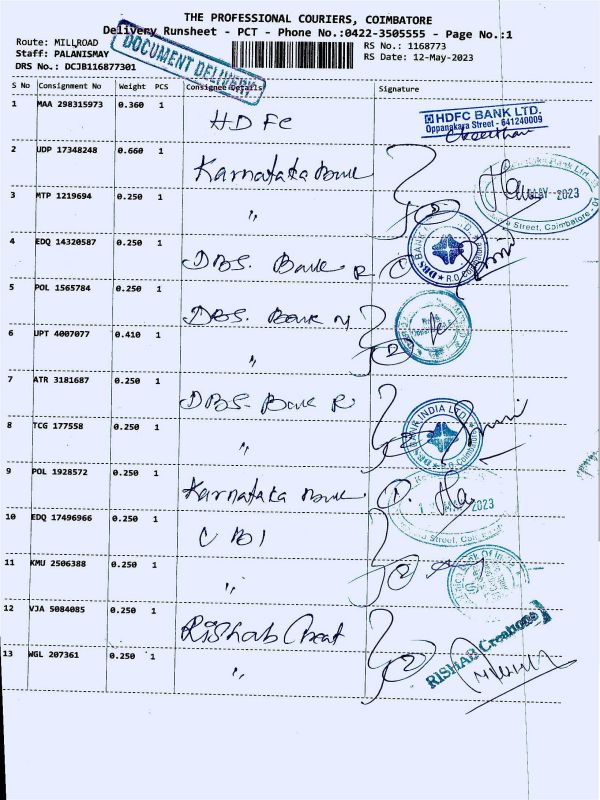 THE PROFESSIONAL COURIERS, COIMBATORE
Delivery Runsheet - PCT - Phone No.:0422-3505555 - Page No.:1
Route: MILLROAD
Staff: PALANISMAY
DRS No.: DCJB116877301
DOCUMENT DELIVERY
RS No.: 1168773
RS Date: 12-May-2023
S No Consignment No Weight PCS Consignee Details Signature
1 MAA 298315973 0.360 1 HDFC
HDFC BANK LTD.
Oppanakara Street - 641240009
2 UDP 17348248 0.660 1 Karnataka Bank
MAY 2023
Street, Coimbatore - 01
3 MTP 1219694 0.250 1 "
4 EDQ 14320587 0.250 1 DBS. Bank R
DBS BANK R.O. Coimbatore
5 POL 1565784 0.250 1 DBS. Bank M
6 UPT 4007077 0.410 1 "
7 ATR 3181687 0.250 1 DBS. Bank R
DBS BANK INDIA LTD. R.O. Coimbatore
8 TCG 177558 0.250 1 "
9 POL 1928572 0.250 1 Karnataka Bank
2023
Street,
10 EDQ 17496966 0.250 1 CBI
11 KMU 2506388 0.250 1 "
12 VJA 5084085 0.250 1 Rishab Creat
RISHAB Creations
13 WGL 207361 0.250 1 "